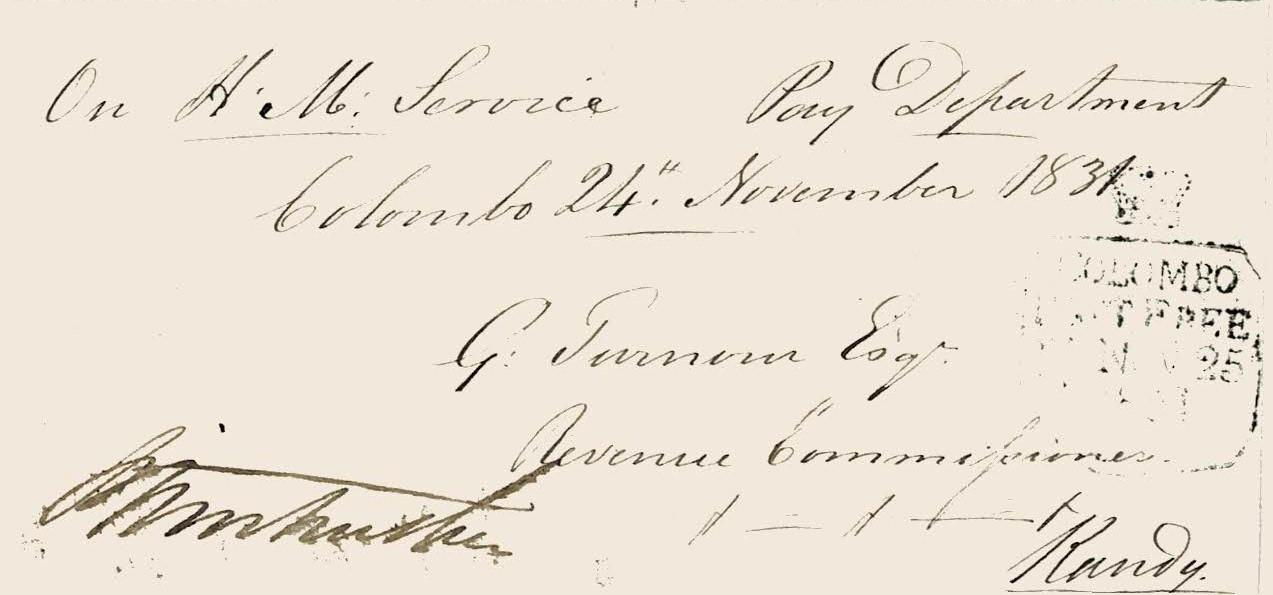 On H. M: Service Pay Department
Colombo 24th. November 1831
COLOMBO
POST FREE
NOV 25
G. Turnour Esqr.
Revenue Commissioner
Kandy.